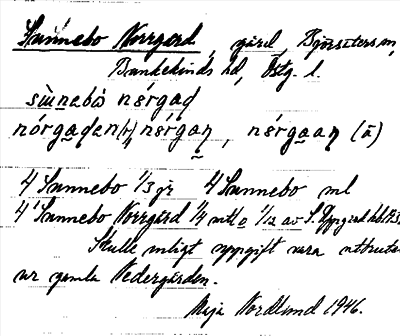 Sunnebo Norrgård, gård, Björsäters sn,
Bankekinds hd, Östg. l.
sùnabó nórgad
nórgaden(r) nórgaṇ, nórgaaṇ (ā)
4 Sunnebo 1/3 jr 4 Sunnebo ml
4 Sunnebo Norrgård 1/4 mtl o 1/12 av S.
Skulle enligt uppgift vara
ur gamla Nedergården.
Maja Nordlund 1946.